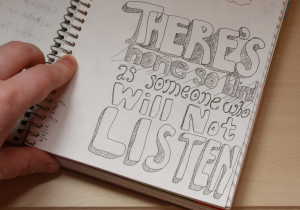 THERE'S
none so blind
as someone who
Will Not
LISTEN